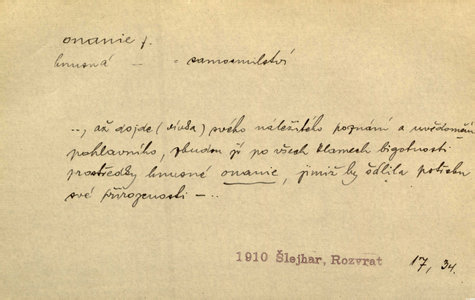 onanie f.
hnusná — = samomilství
.., až dojde (vdova) svého náležitého poznání a uvědomění
pohlavního, zbudou jí po všech klamech bigotnosti
prostředky hnusné onanie, jimiž by šálila potřebu
své přirozenosti – ..
1910 Šlejhar, Rozvrat 17, 34.